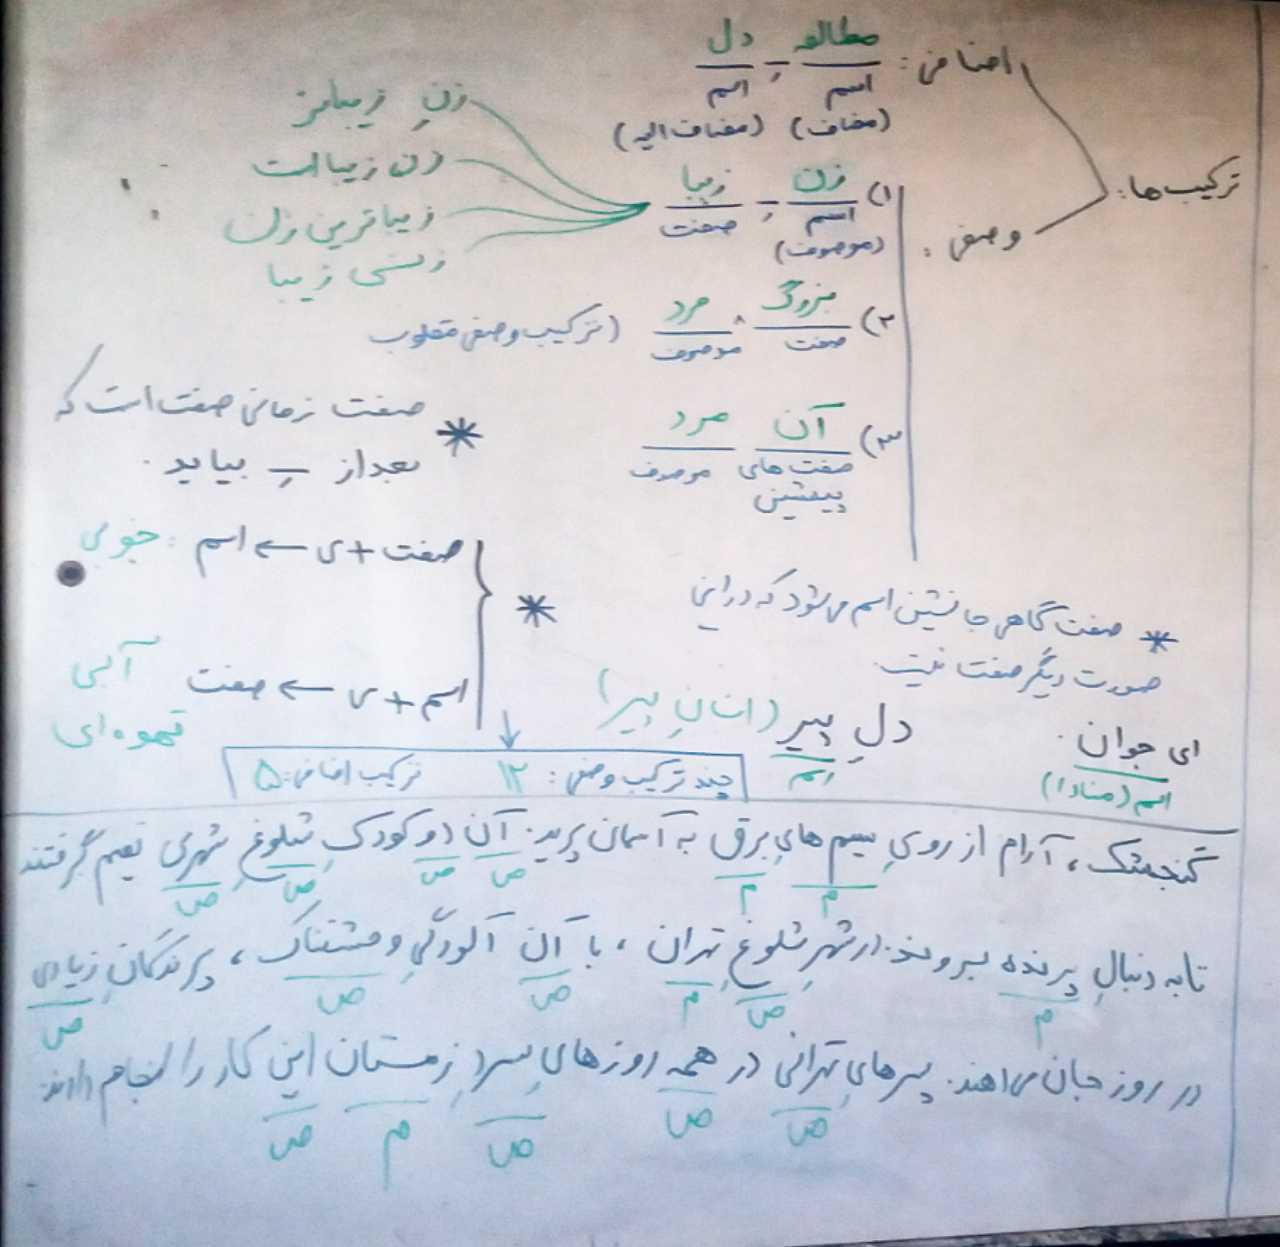 ترکیب ها:
اضافی: مطالعه ـِ دل
اسم اسم
(مضاف) (مضاف الیه)
وصفی:
۱) زن ـِ زیبا
اسم صفت
(موصوف)
زنِ زیباتر
زن زیبا است
زیباترین زن
زنی زیبا
۲) بزرگ مرد (ترکیب وصفی مقلوب
صفت موصوف
۳) آن مرد
صفت های موصوف
پیشین
* صفت زمانی صفت است که
بعد از ـِ بیاید.
* صفت + ی ← اسم: خوبی
اسم + ی ← صفت آبی
قهوه ای
* صفت گاهی جانشین اسم می شود که در این
صورت دیگر صفت نیست.
ای جوان دلِ پیر (انسانِ پیر)
اسم (منادا) اسم
چند ترکیب وصفی: ۱۲ ترکیب اضافی: ۵
گنجشک، آرام از رویِ سیم هایِ برق به آسمان پرید. آن دو کودکِ شلوغِ شهری تصمیم گرفتند
م م ص ص ص ص
تا به دنبالِ پرنده بروند. در شهرِ شلوغِ تهران، با آن آلودگیِ وحشتناک، پرندگانِ زیادی
م ص م ص ص ص
در روز جان می دهند. پسرهایِ تهرانی در همه روزهایِ سردِ زمستان این کار را انجام دادند.
ص ص ص م ص